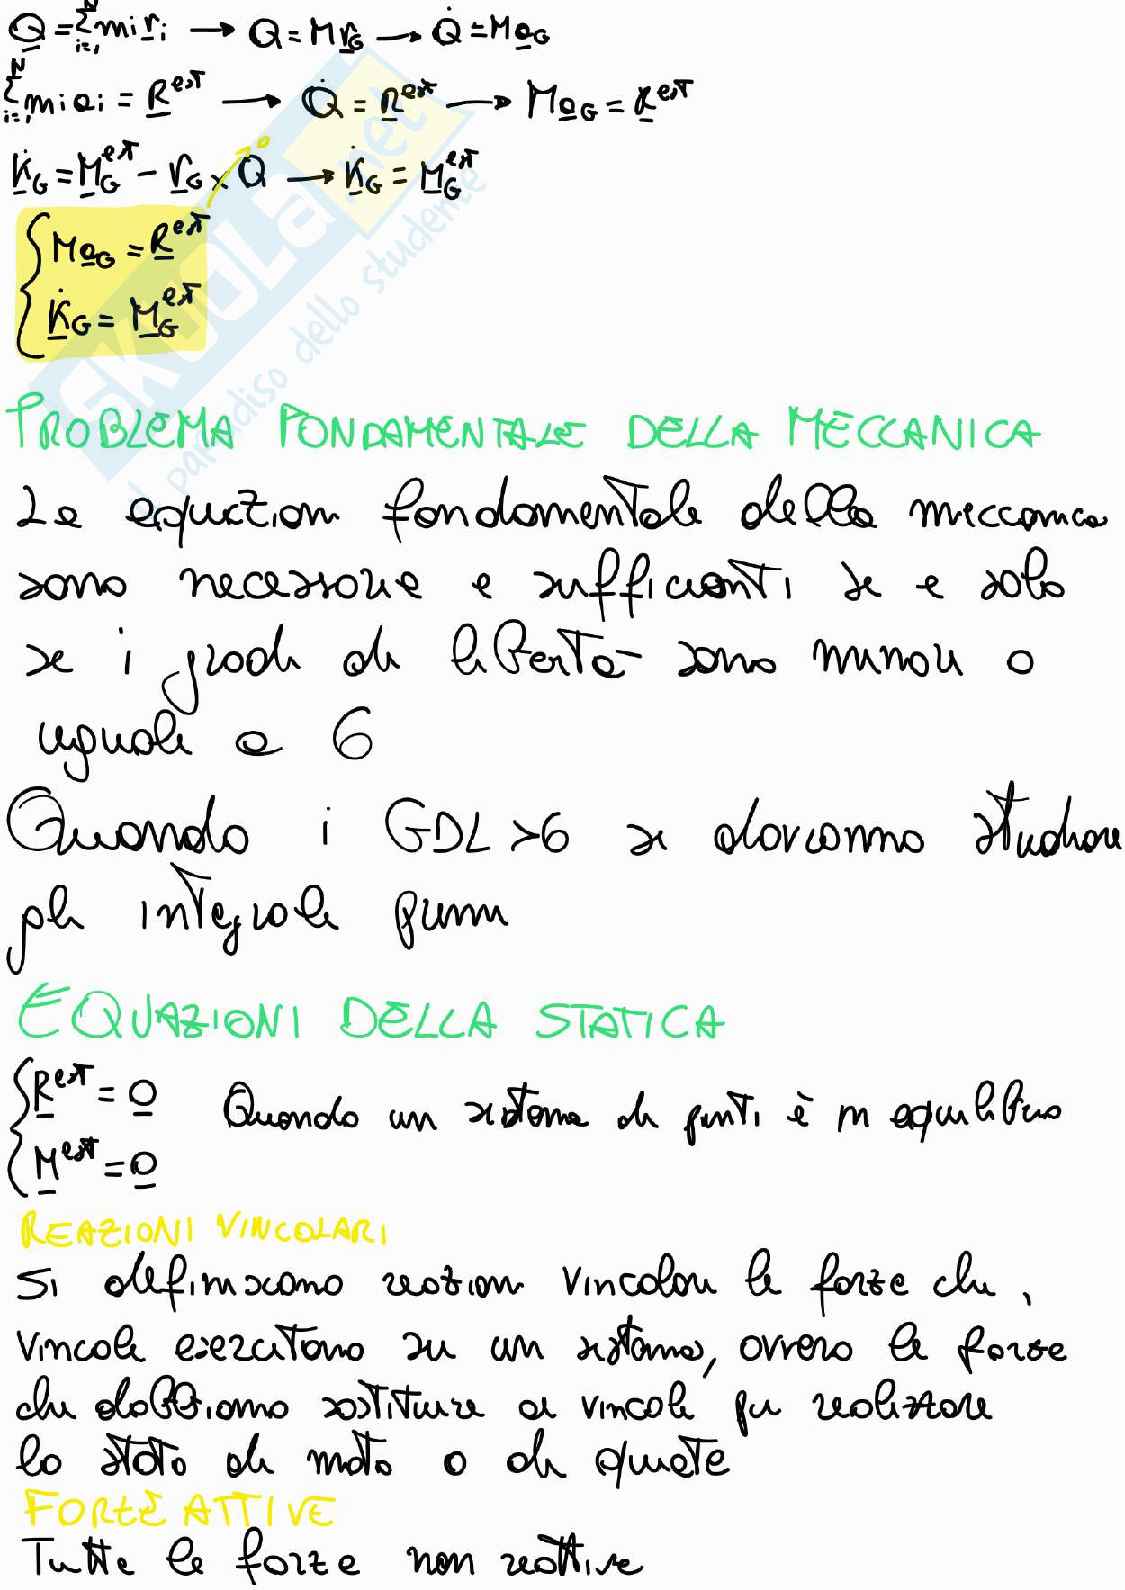 Q = Σᵢ₌₁ᴺ mi ri → Q = M rG → Q̇ = M aG
Σᵢ₌₁ᴺ mi ai = R^ext → Q̇ = R^ext → M aG = R^ext
K̇G = MG^ext - rG × Q̇ → K̇G = MG^ext
{ M aG = R^ext
K̇G = MG^ext
SKUOLA.net
il paradiso dello studente
PROBLEMA FONDAMENTALE DELLA MECCANICA
Le equazioni fondamentale della meccanica
sono necessarie e sufficienti se e solo
se i gradi di libertà sono minori o
uguali a 6
Quando i GDL >6 si dovranno studiare
gli integrali primi
EQUAZIONI DELLA STATICA
{ R^ext = 0 Quando un sistema di punti è in equilibrio
M^ext = 0
REAZIONI VINCOLARI
Si definiscono reazioni vincolari le forze che i
vincoli esercitano su un sistema, ovvero le forze
che dobbiamo sostituire ai vincoli per realizzare
lo stato di moto o di quiete
FORZE ATTIVE
Tutte le forze non reattive